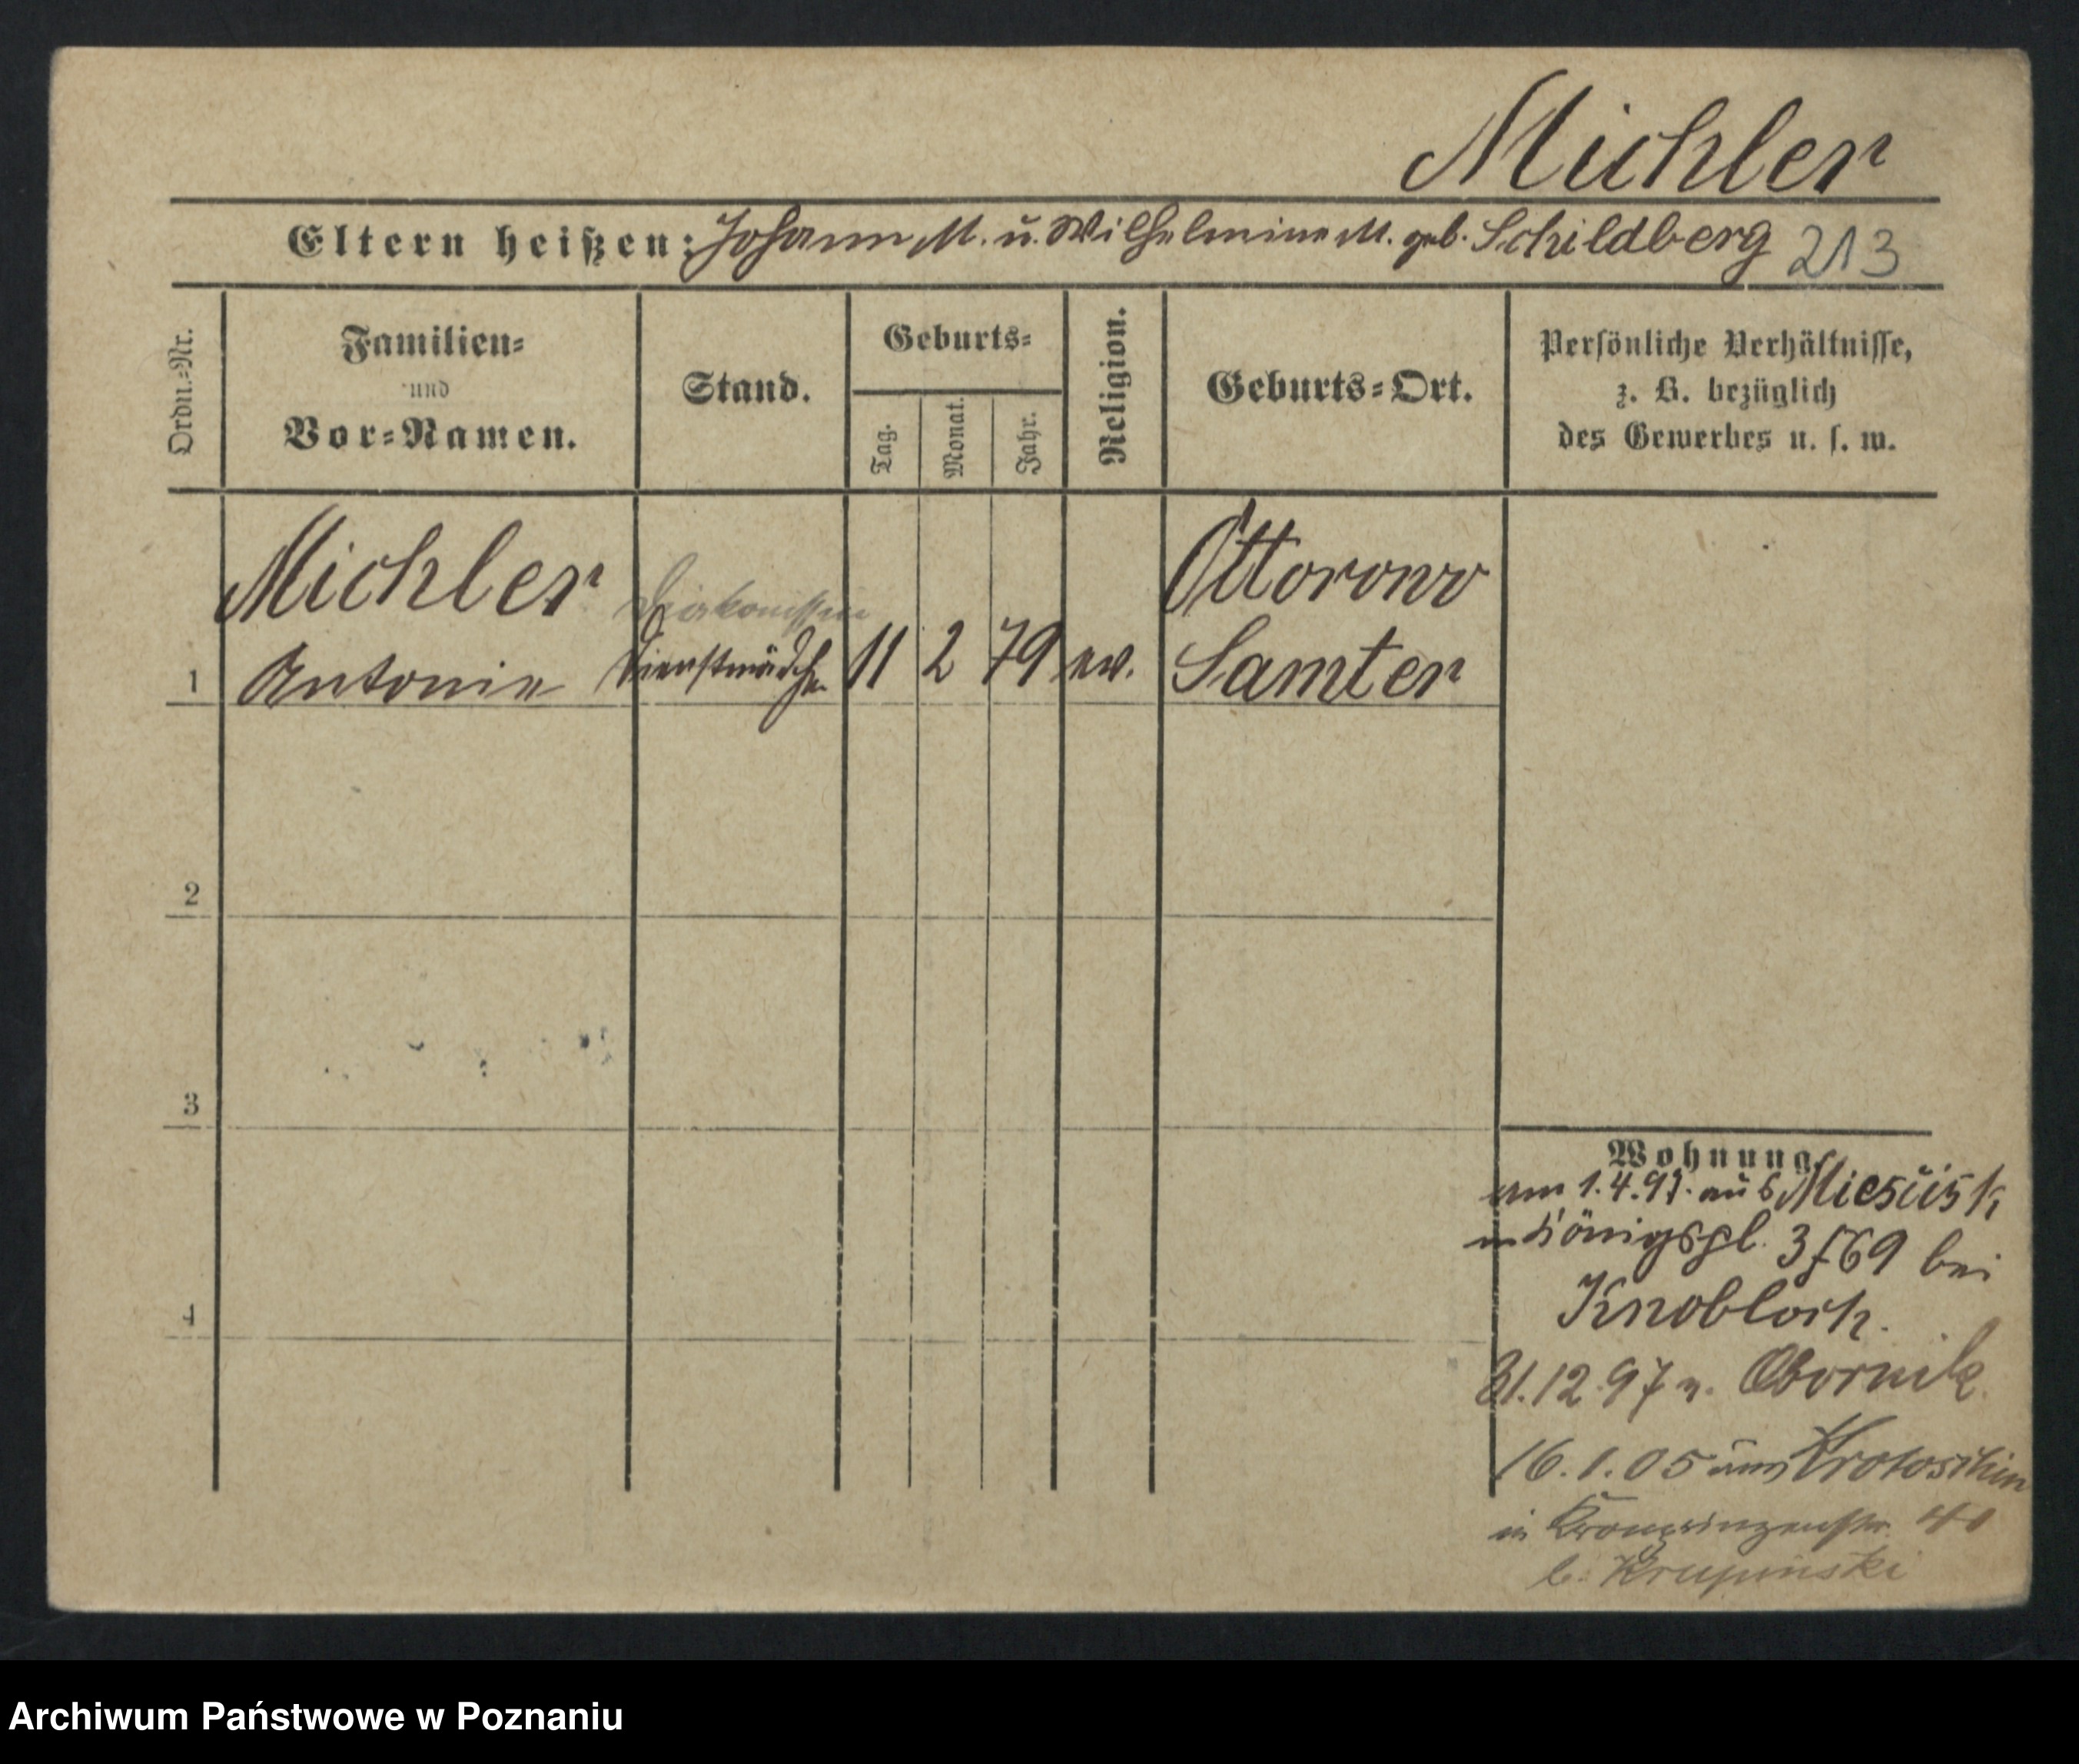 Michler
Eltern heißen: Johann M. u. Wilhelmine M. geb. Schildberg 213
Ordn.-Nr.
Familien-
und
Vor-Namen.
Stand.
Geburts-
Tag.
Monat.
Jahr.
Religion.
Geburts-Ort.
Persönliche Verhältnisse,
z. B. bezüglich
des Gewerbes u. s. w.
Michler
Diakonissin
Ottorowo
1 Antonie Dienstmädch. 11 2 79 ev. Samter
2
3
4
Wohnung
am 1.4.97. aus
Königspl. 3 bei
Knobloch.
31.12.97 n. Obornik
16.1.05 aus Krotoschin
in Kronprinzenstr.
b. Krupinski
Archiwum Państwowe w Poznaniu